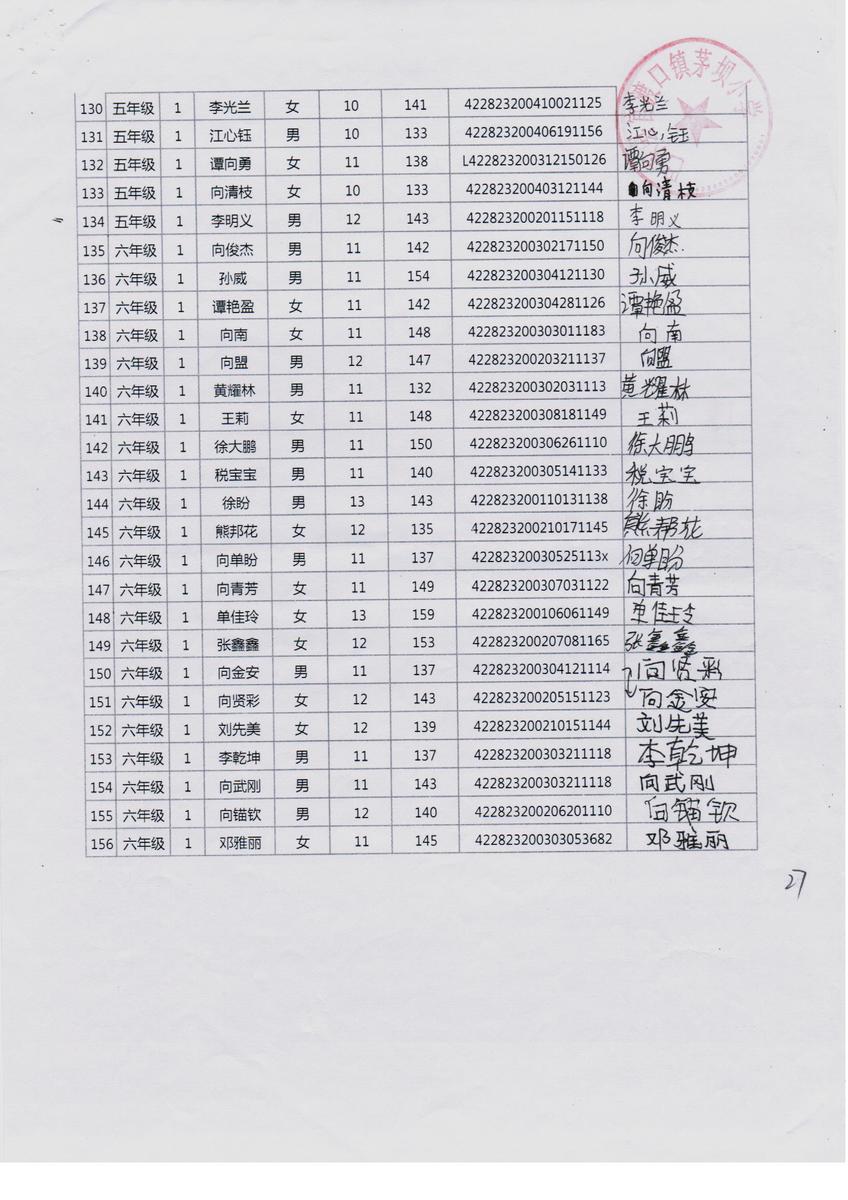 口镇茅坝小学
130 五年级 1 李光兰 女 10 141 422823200410021125 李光兰
131 五年级 1 江心钰 男 10 133 422823200406191156 江心钰
132 五年级 1 谭向勇 女 11 138 L422823200312150126 谭向勇
133 五年级 1 向清枝 女 10 133 422823200403121144 向清枝
134 五年级 1 李明义 男 12 143 422823200201151118 李明义
135 六年级 1 向俊杰 男 11 142 422823200302171150 向俊杰
136 六年级 1 孙威 男 11 154 422823200304121130 孙威
137 六年级 1 谭艳盈 女 11 142 422823200304281126 谭艳盈
138 六年级 1 向南 女 11 148 422823200303011183 向南
139 六年级 1 向盟 男 12 147 422823200203211137 向盟
140 六年级 1 黄耀林 男 11 132 422823200302031113 黄耀林
141 六年级 1 王莉 女 11 148 422823200308181149 王莉
142 六年级 1 徐大鹏 男 11 150 422823200306261110 徐大鹏
143 六年级 1 税宝宝 男 11 140 422823200305141133 税宝宝
144 六年级 1 徐盼 男 13 143 422823200110131138 徐盼
145 六年级 1 熊邦花 女 12 135 422823200210171145 熊帮花
146 六年级 1 向单盼 男 11 137 42282320030525113x 向单盼
147 六年级 1 向青芳 女 11 149 422823200307031122 向青芳
148 六年级 1 单佳玲 女 13 159 422823200106061149 单佳玲
149 六年级 1 张鑫鑫 女 12 153 422823200207081165 张鑫鑫
150 六年级 1 向金安 男 11 137 422823200304121114 向贤彩
151 六年级 1 向贤彩 女 12 143 422823200205151123 向金安
152 六年级 1 刘先美 女 12 139 422823200210151144 刘先美
153 六年级 1 李乾坤 男 11 137 422823200303211118 李乾坤
154 六年级 1 向武刚 男 11 143 422823200303211118 向武刚
155 六年级 1 向锚钦 男 12 140 422823200206201110 向锚钦
156 六年级 1 邓雅丽 女 11 145 422823200303053682 邓雅丽
27